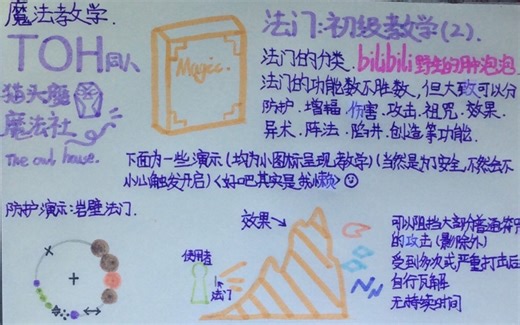 魔法教学.
TOH同人
猫头鹰
魔法社
The owl house.
Magic.
法门:初级教学(2).
法门的分类.
bilibili 野生的肿泡泡
法门的功能数不胜数,但大致可以分
防护.增幅.伤害.攻击.诅咒.效果.
异术.阵法.陷井.创造等功能.
下面为一些演示(均为小图标呈现教学)(当然是为了安全,不然会不
小心触发开启)<好吧其实是我懒>
防护演示:岩壁法门.
效果
使用者
法门
可以阻挡大部分普通符
的攻击(影除外)
受到多次或严重打击后
自行瓦解
无持续时间